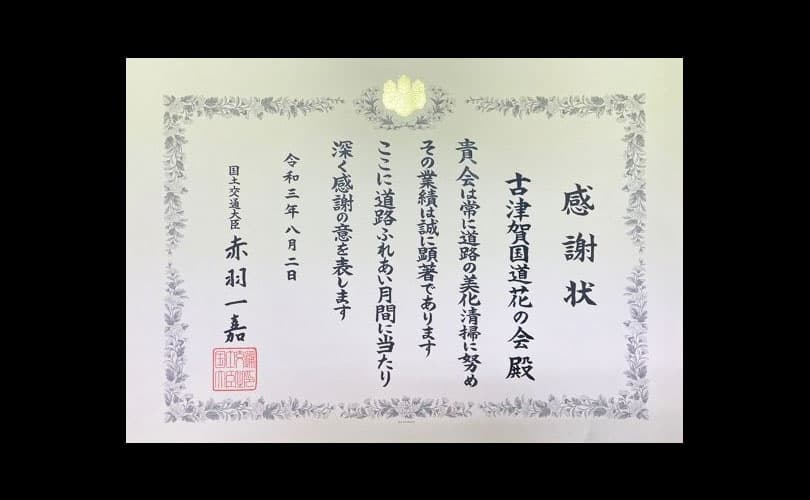 感謝状
古津賀国道花の会 殿
貴会は常に道路の美化清掃に努め
その業績は誠に顕著であります
ここに道路ふれあい月間に当たり
深く感謝の意を表します
令和三年八月二日
国土交通大臣 赤羽一嘉